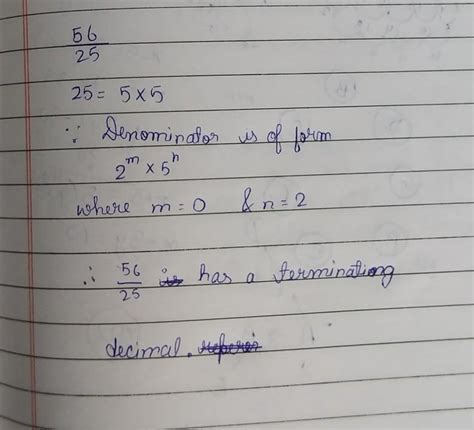 56/25
25 = 5 × 5
∵ Denominator is of form
2^m × 5^n
where m = 0 & n = 2
∴ 56/25 has a terminationg
decimal.